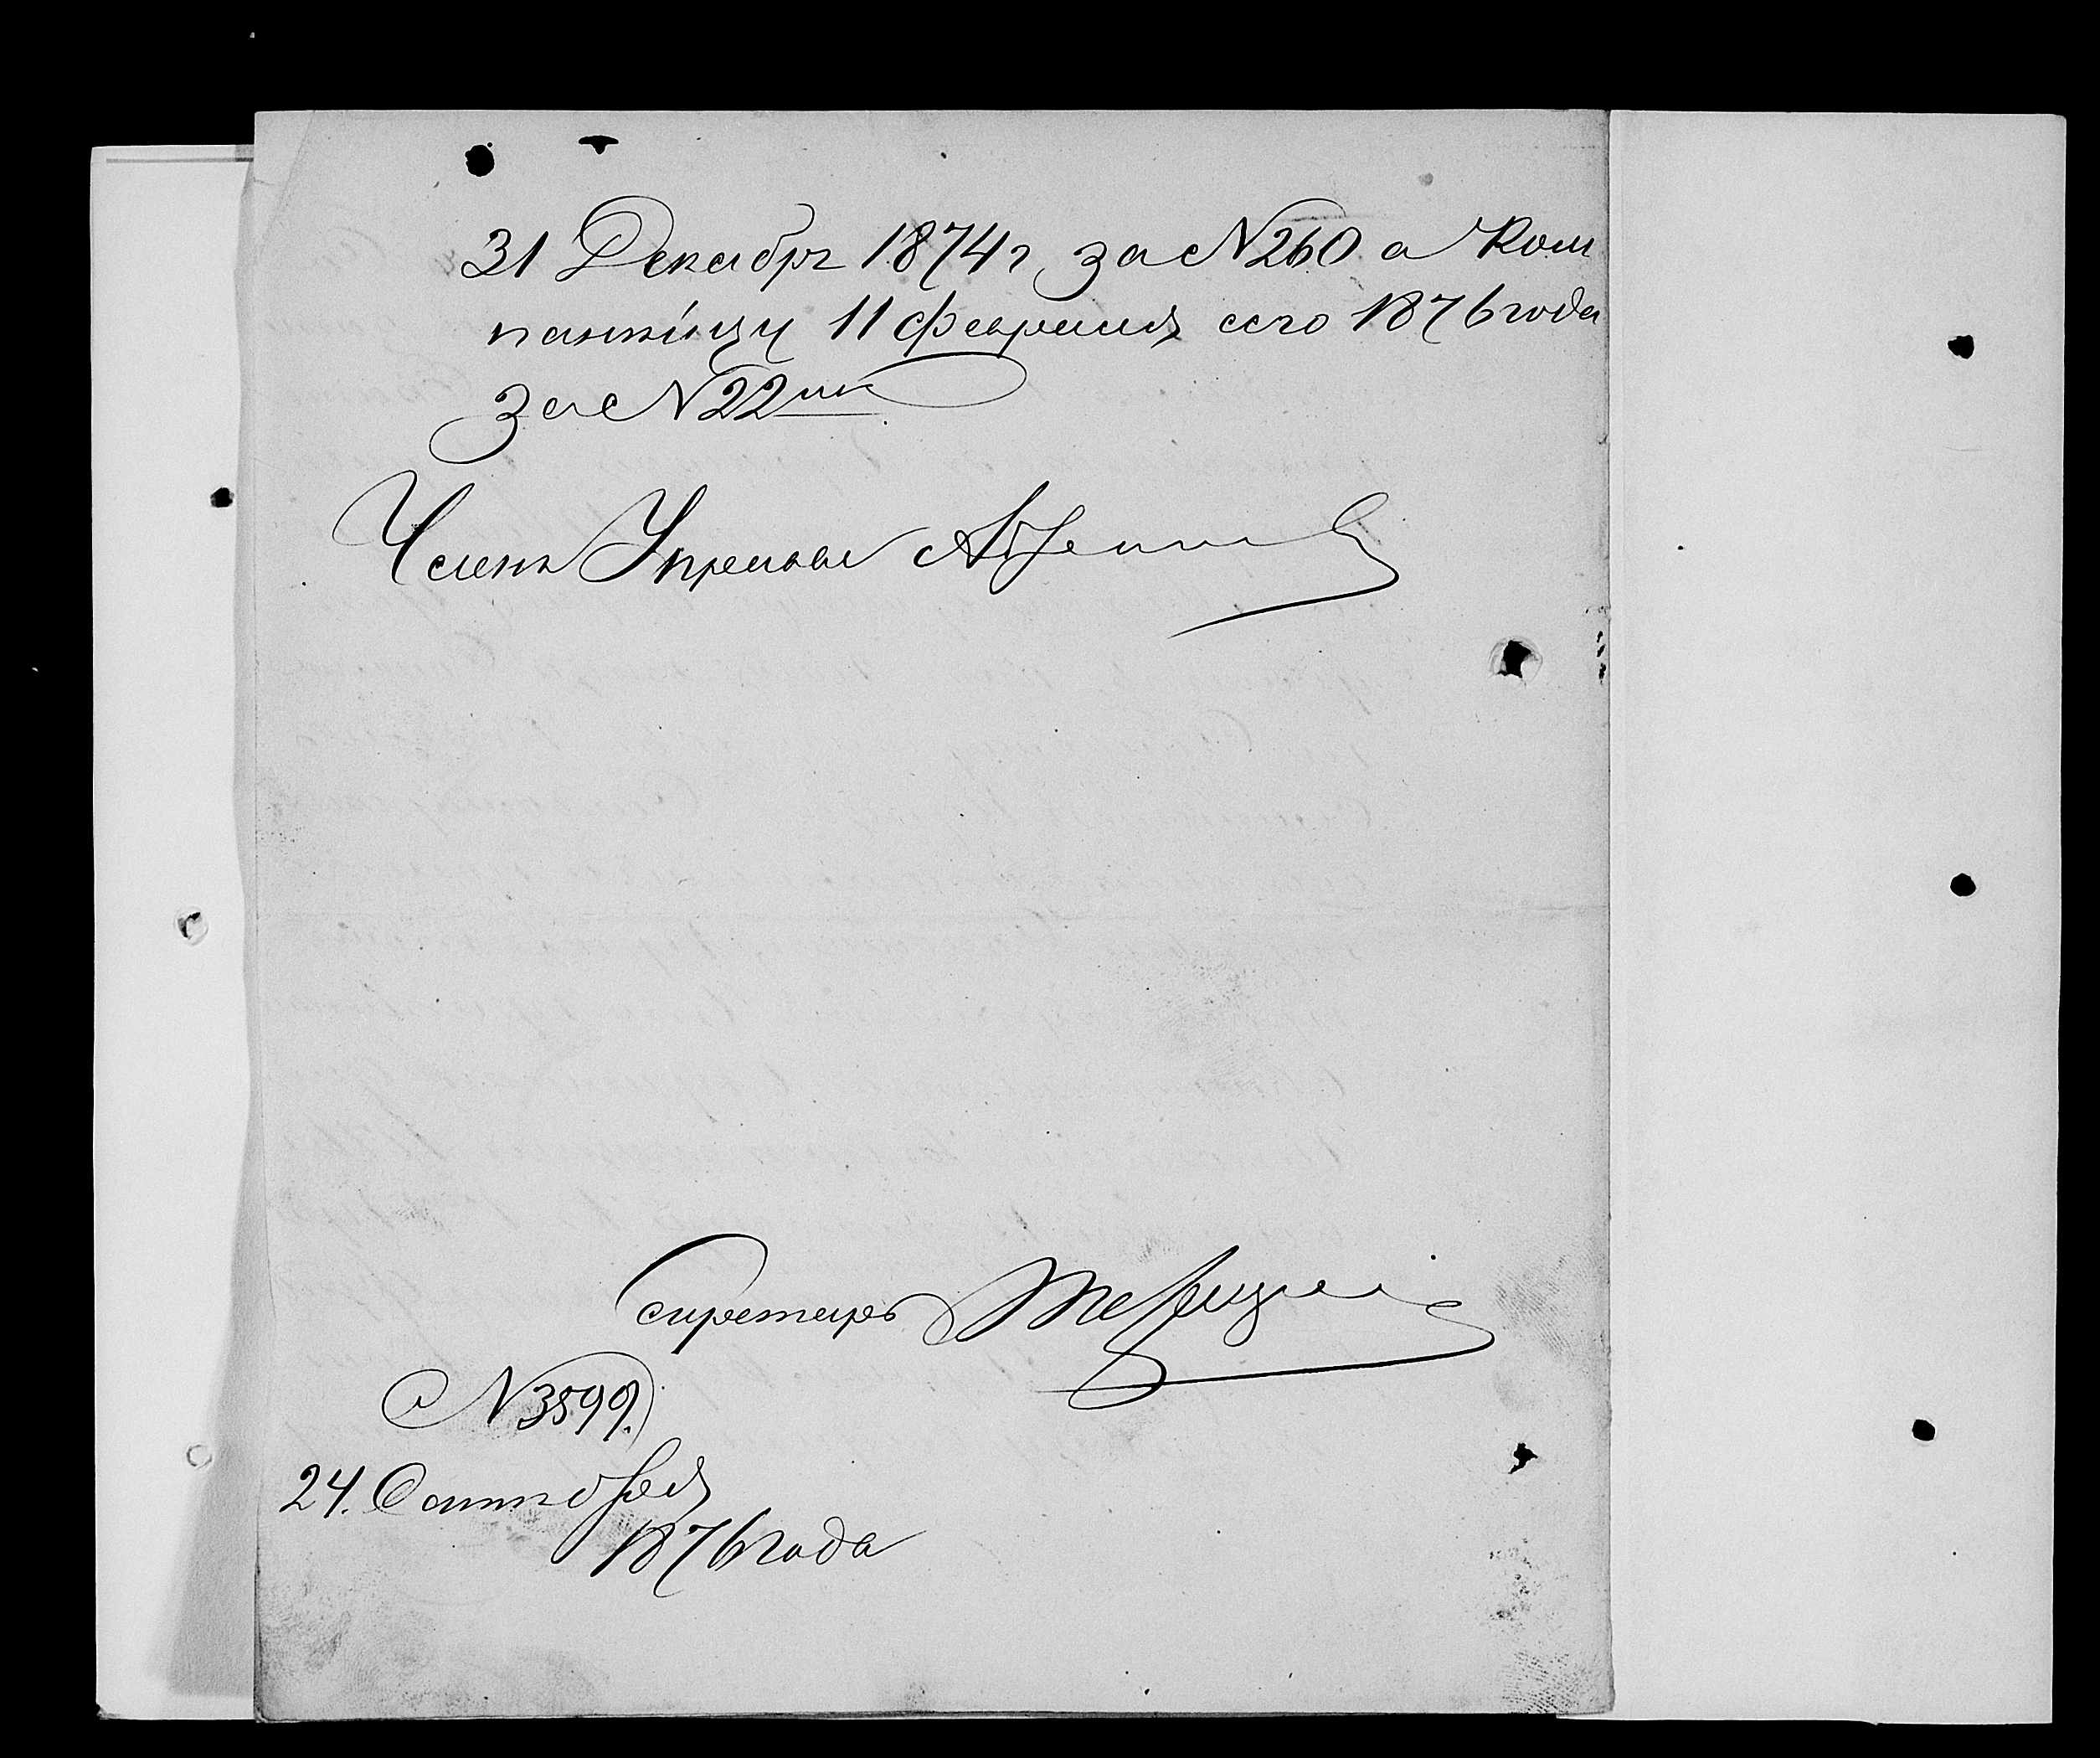 31 Декабря 1874 г за № 260 а Ком
паніи 11 февраля сего 1876 года
за № 22мъ
Членъ Управы
Секретарь
№ 3899.
24. Октября
1876 года